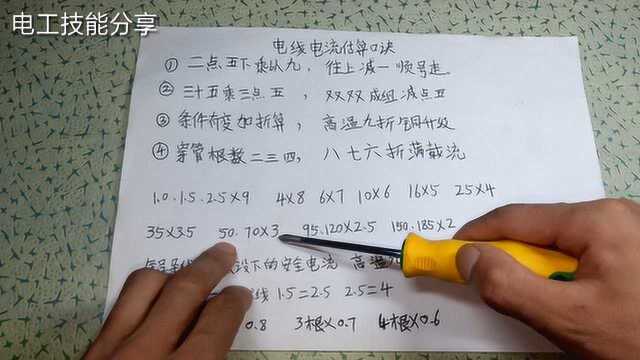 电工技能分享
电线电流估算口诀
① 二点五下乘以九，往上减一顺号走。
② 三十五乘三点五，双双成组减点五
③ 条件有变加折算，高温九折铜升级
④ 穿管根数二三四，八七六折满载流
1.0. 1.5. 2.5×9 4×8 6×7 10×6 16×5 25×4
35×3.5 50. 70×3 95. 120×2.5 150. 185×2
下的安全电流 高温
线 1.5=2.5 2.5=4
0.8 3根×0.7 4根×0.6